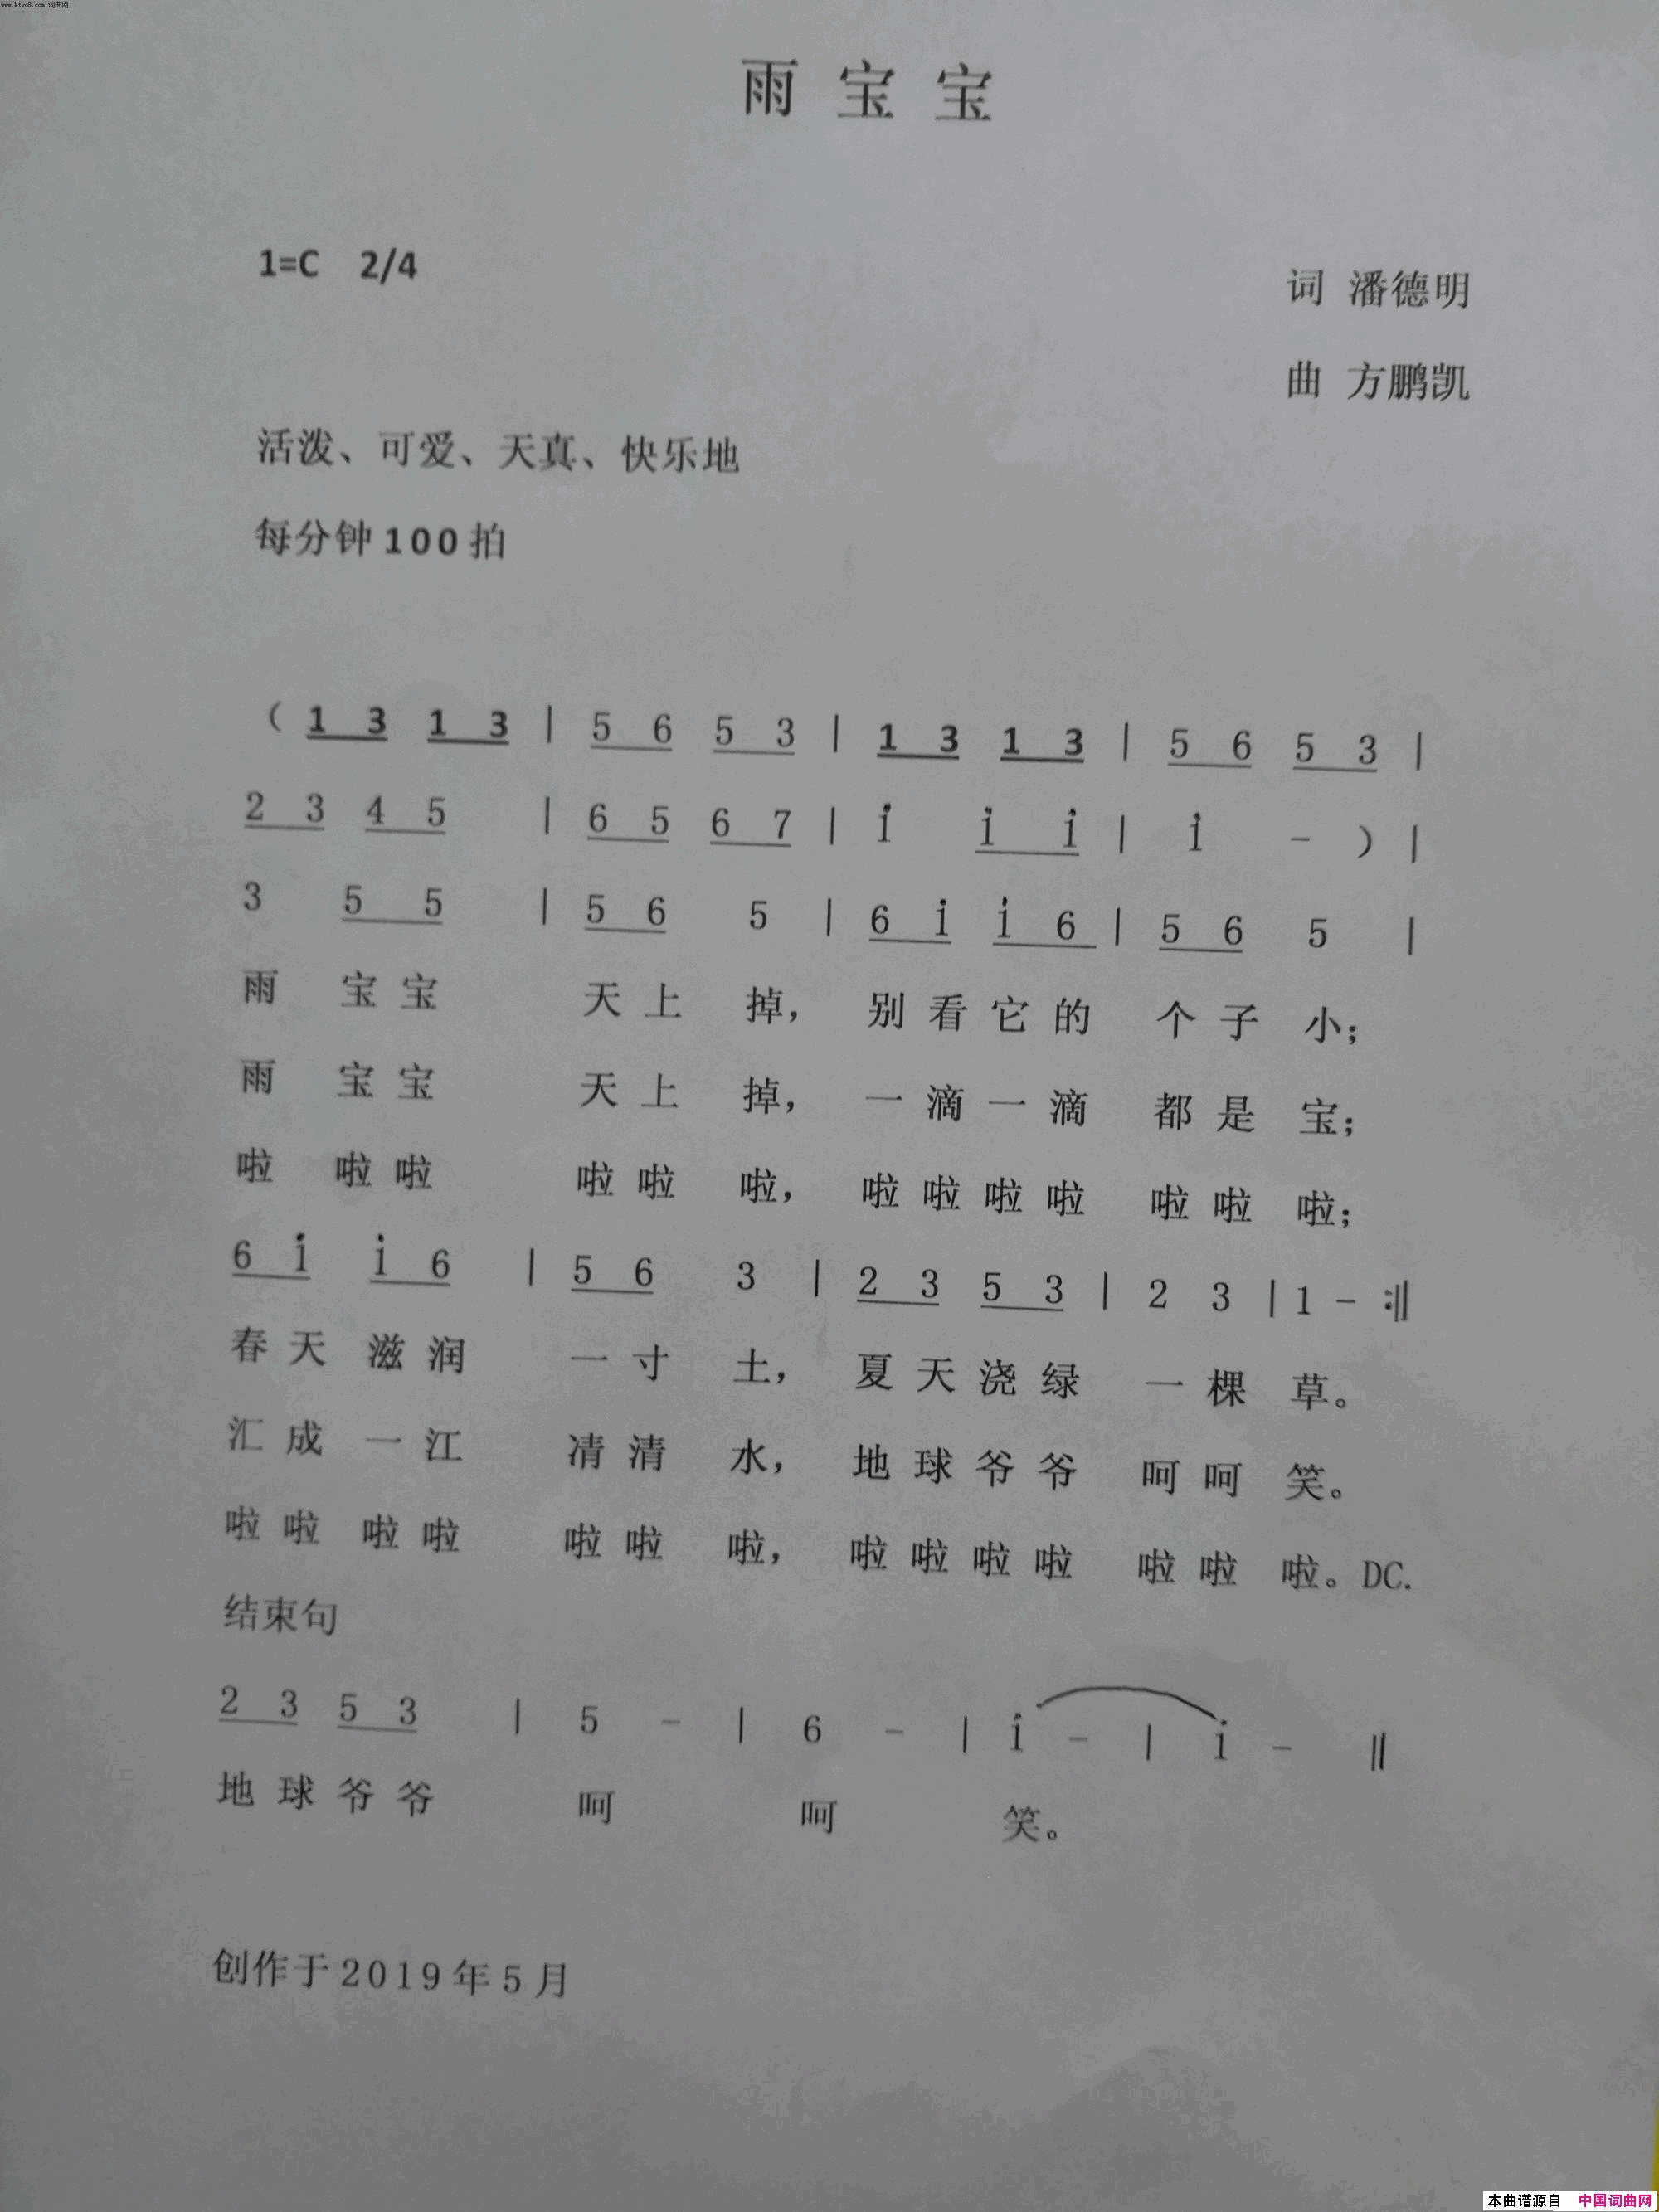 www.ktvc8.com 词曲网
雨宝宝
1=C 2/4
词 潘德明
曲 方鹏凯
活泼、可爱、天真、快乐地
每分钟100拍
（ 1 3 1 3 | 5 6 5 3 | 1 3 1 3 | 5 6 5 3 |
2 3 4 5 | 6 5 6 7 | i i i | i - ） |
3 5 5 | 5 6 5 | 6 i i 6 | 5 6 5 |
雨 宝宝 天上 掉， 别看它的 个子 小；
雨 宝宝 天上 掉， 一滴一滴 都是 宝；
啦 啦啦 啦啦 啦， 啦啦啦啦 啦啦 啦；
6 i i 6 | 5 6 3 | 2 3 5 3 | 2 3 | 1 - :‖
春天 滋润 一寸 土， 夏天浇绿 一棵 草。
汇成 一江 清清 水， 地球爷爷 呵呵 笑。
啦啦 啦啦 啦啦 啦， 啦啦啦啦 啦啦 啦。DC.
结束句
2 3 5 3 | 5 - | 6 - | i - | i - ‖
地球爷爷 呵 呵 笑。
创作于2019年5月
本曲谱源自 中国词曲网